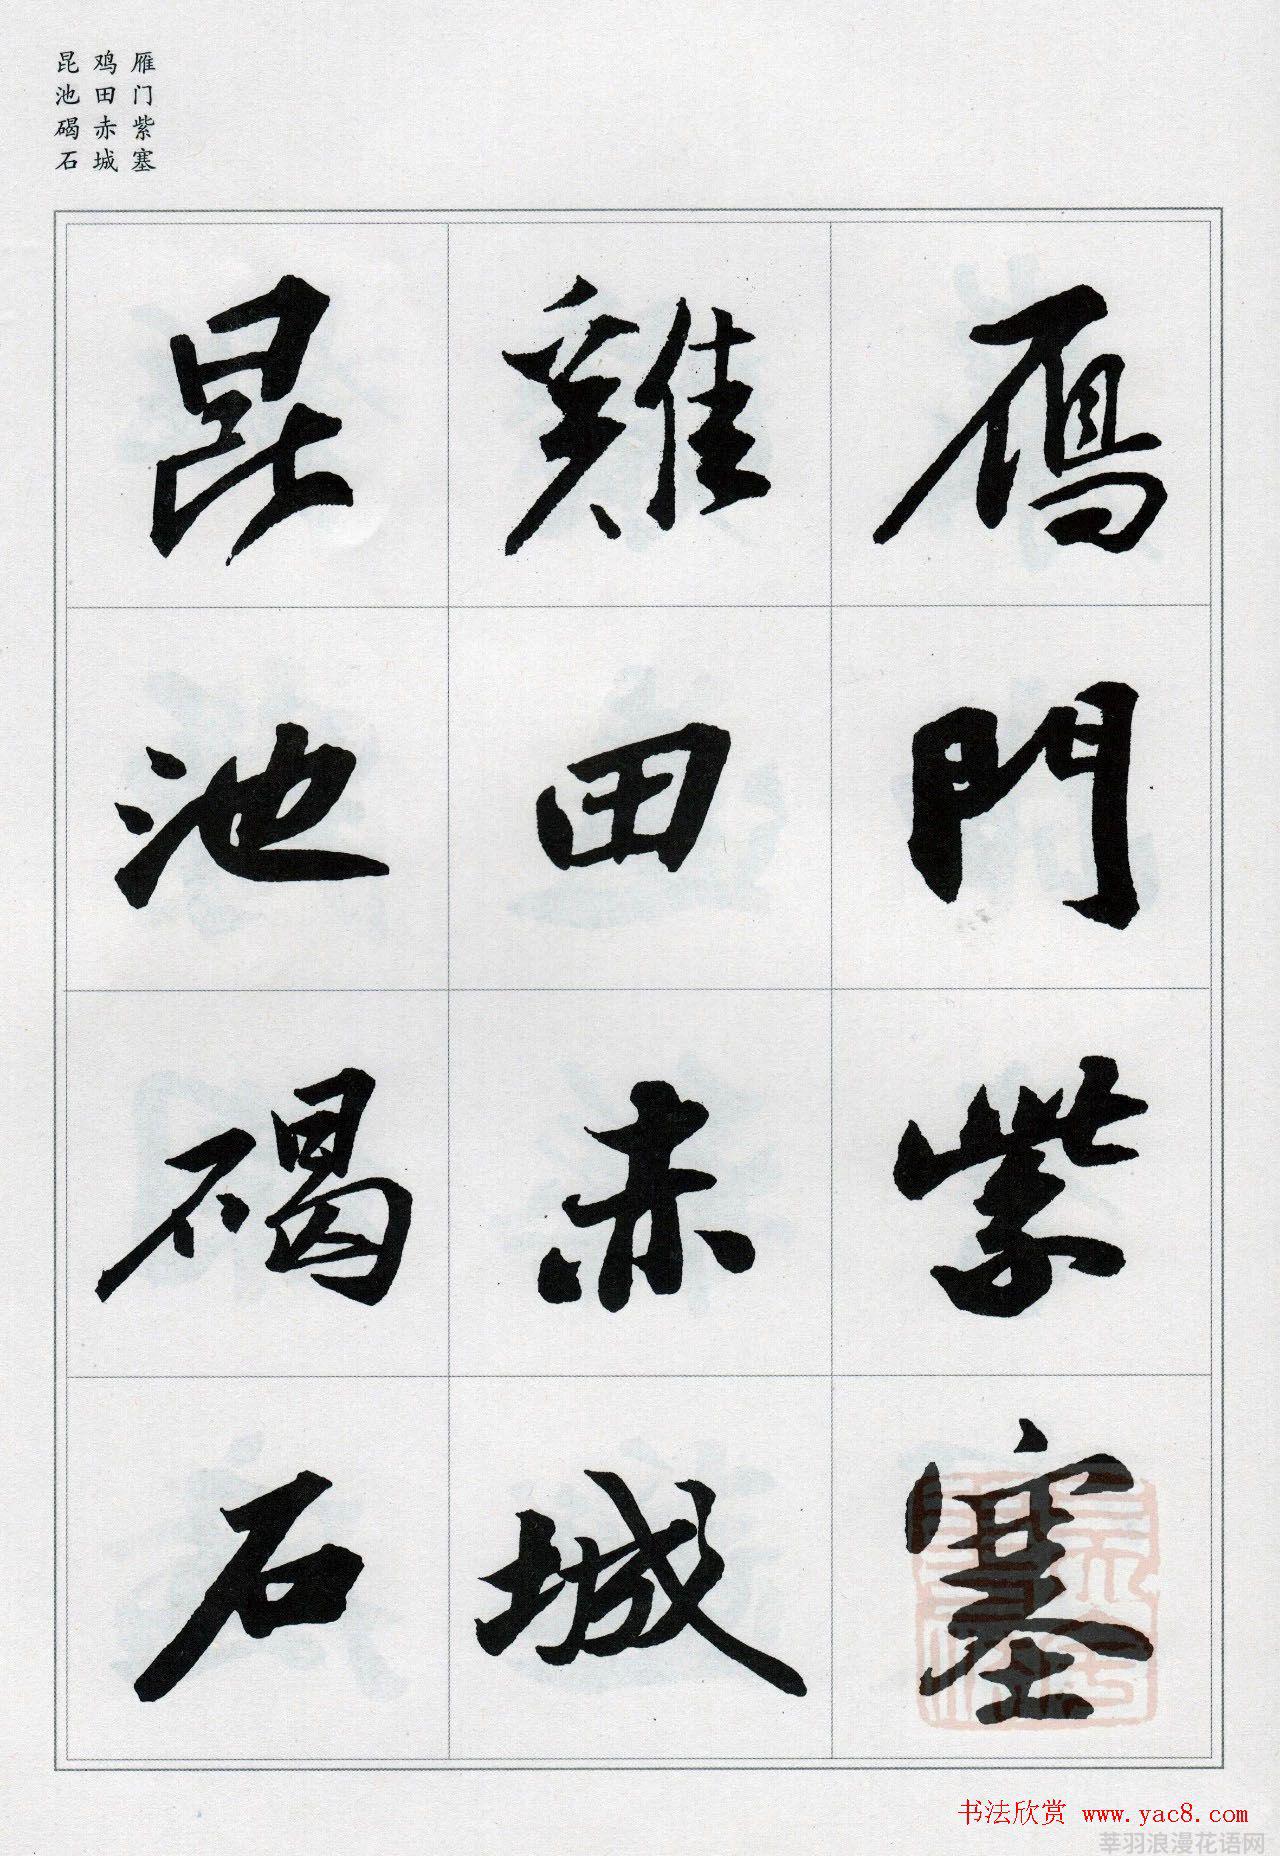 雁门紫塞
鸡田赤城
昆池碣石
鴈門紫塞
雞田赤城
昆池碣石
书法欣赏 www.yac8.com
莘羽浪漫花语网